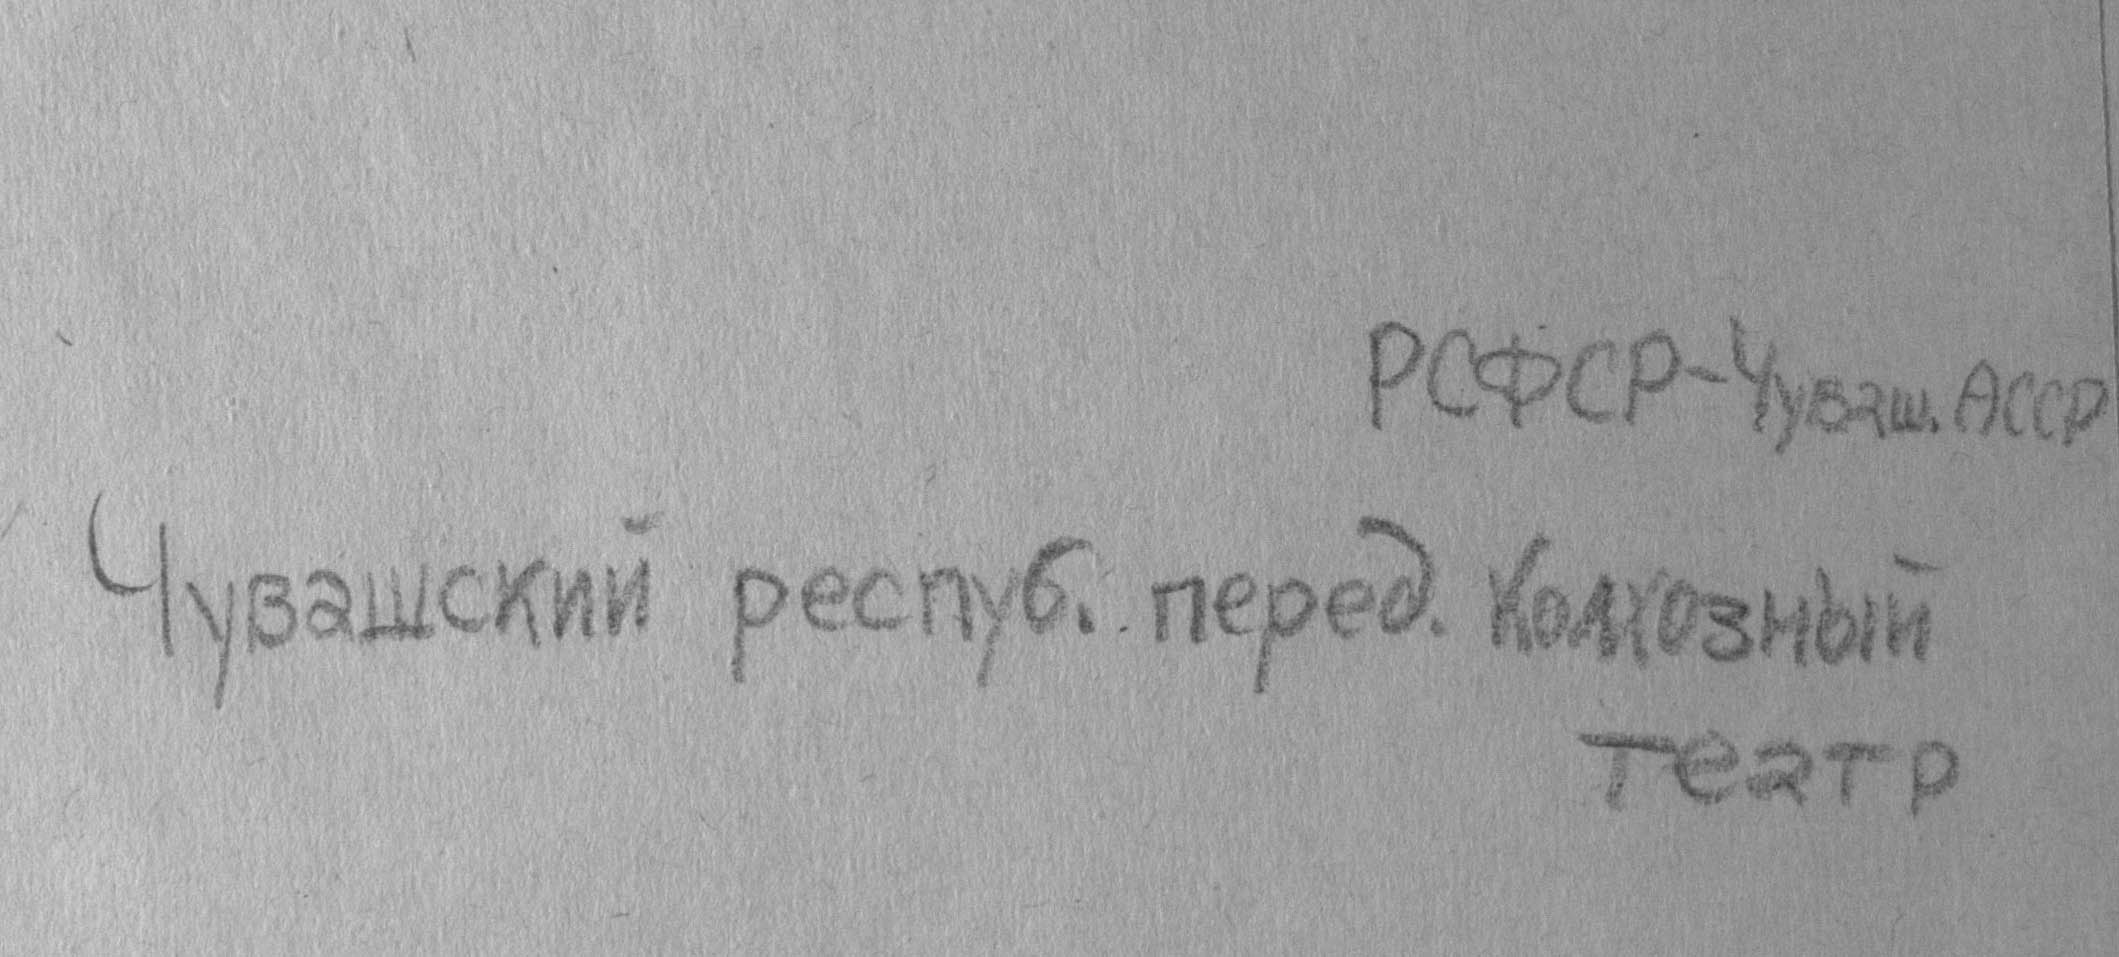 РСФСР-Чуваш. АССР
Чувашский респуб. перед. Колхозный
театр